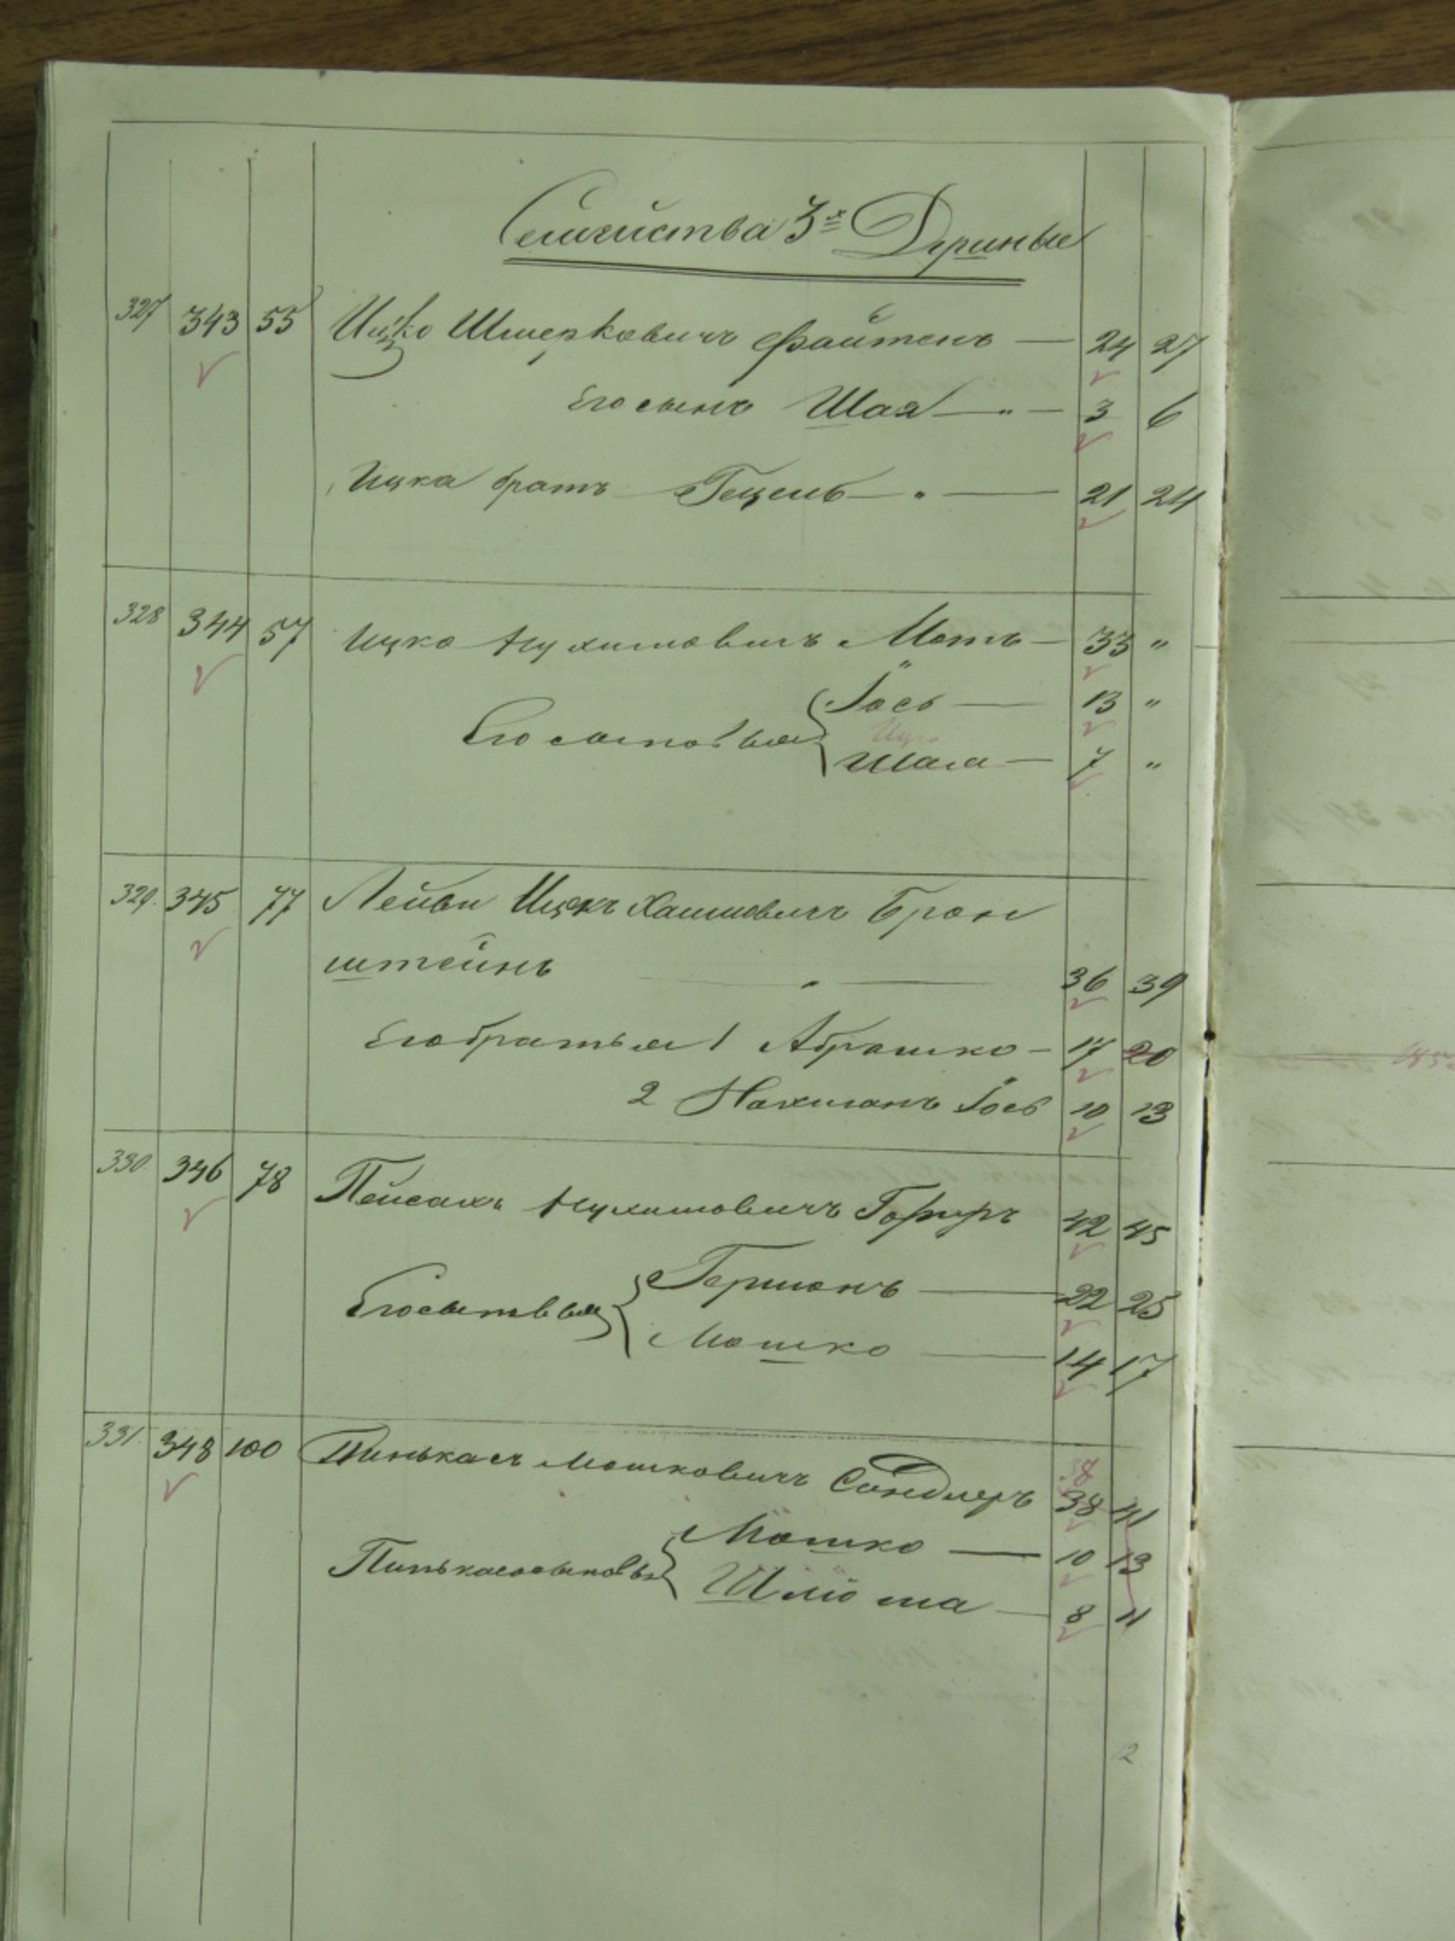 Семейства 3х Душные
327 343 55 Ицко Шмерковичъ Файтенъ — 24 27
Его сынъ Шая — " — 3 6
Ицка братъ Гецель — " — 21 24
328 344 57 Ицко Нухимовичъ Мотъ — 33 "
Іось — 13 "
Его сыновья
Шая — 7 "
329. 345 77 Лейви Ицекъ Хаимовичъ Брон
штейнъ — " — 36 39
Его братья 1 Абрашко — 17 20
2 Нахманъ Іось 10 13
330 346 78 Пейсахъ Нухимовичъ 42 45
Германъ — 22 25
Его сыновья
Мошко — 14 17
331. 348 100 Пинькасъ Мошковичъ Сандлеръ 38 41
Мошко — 10 13
Пинькаса сыновья
Шлёма — 8 11
12